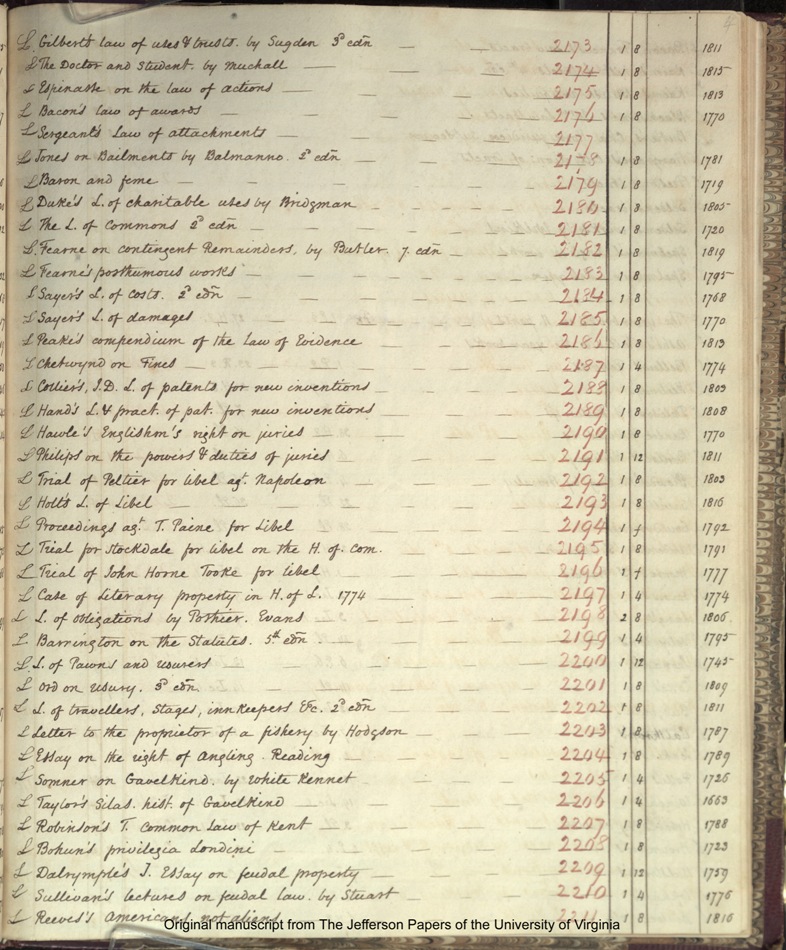 L. Gilbert's law of uses & trusts. by Sugden 3d edn — 2173 1 8 1811
L The Doctor and Student. by Muchall — 2174 1 8 1815
L Espinasse on the law of actions — 2175 1 8 1813
L Bacon's law of awards — 2176 1 8 1770
L Sergeant's Law of attachments — 2177
L Jones on Bailments by Balmanno. 2d edn — 2178 1 8 1781
L Baron and feme — 2179 1 8 1719
L Duke's L. of charitable uses by Bridgman — 2180 1 8 1805
L The L. of Commons 2d edn — 2181 1 8 1720
L. Fearne on contingent Remainders, by Butler. 7. edn — 2182 1 8 1819
L Fearne's posthumous works — 2183 1 8 1795
L Sayer's L. of Costs. 2d edn — 2184 1 8 1768
L Sayer's L. of damages — 2185 1 8 1770
L Peake's compendium of the law of Evidence — 2186 1 8 1813
L Chetwynd on Fines — 2187 1 4 1774
L Collier's, J.D. L. of patents for new inventions — 2188 1 8 1803
L Hand's L. & pract. of pat. for new inventions — 2189 1 8 1808
L Hawle's Englishm's right on juries — 2190 1 8 1770
L Philips on the powers & duties of juries — 2191 1 12 1811
L Trial of Peltier for libel agt. Napoleon — 2192 1 8 1803
L Holt's L. of Libel — 2193 1 8 1816
L Proceedings agt. T. Paine for Libel — 2194 1 f 1792
L Trial for Stockdale for libel on the H. of. Com. — 2195 1 8 1791
L Trial of John Horne Tooke for libel — 2196 1 f 1777
L Case of Literary property in H. of L. 1774 — 2197 1 4 1774
L L. of obligations by Pothier. Evans — 2198 2 8 1806
L. Barrington on the Statutes. 5th edn. — 2199 1 4 1795
L L. of Pawns and usurers — 2200 1 12 1745
L Ord on usury. 3d edn. — 2201 1 8 1809
L L. of travellers, Stages, innkeepers &c. 2d edn — 2202 1 8 1811
L Letter to the proprietor of a fishery by Hodgson — 2203 1 8 1787
L Essay on the right of Angling. Reading — 2204 1 8 1789
L Somner on Gavelkind. by White Kennet — 2205 1 4 1726
L Taylor's Silas. hist. of Gavelkind — 2206 1 4 1663
L Robinson's T. Common Law of Kent — 2207 1 8 1788
L Bohun's privilegia Londini — 2208 1 8 1723
L Dalrymple's J. Essay on feudal property — 2209 1 12 1759
L Sullivan's lectures on feudal law. by Stuart — 2210 1 4 1776
L Reeves's Americans not aliens — 2211 1 8 1816
Original manuscript from The Jefferson Papers of the University of Virginia